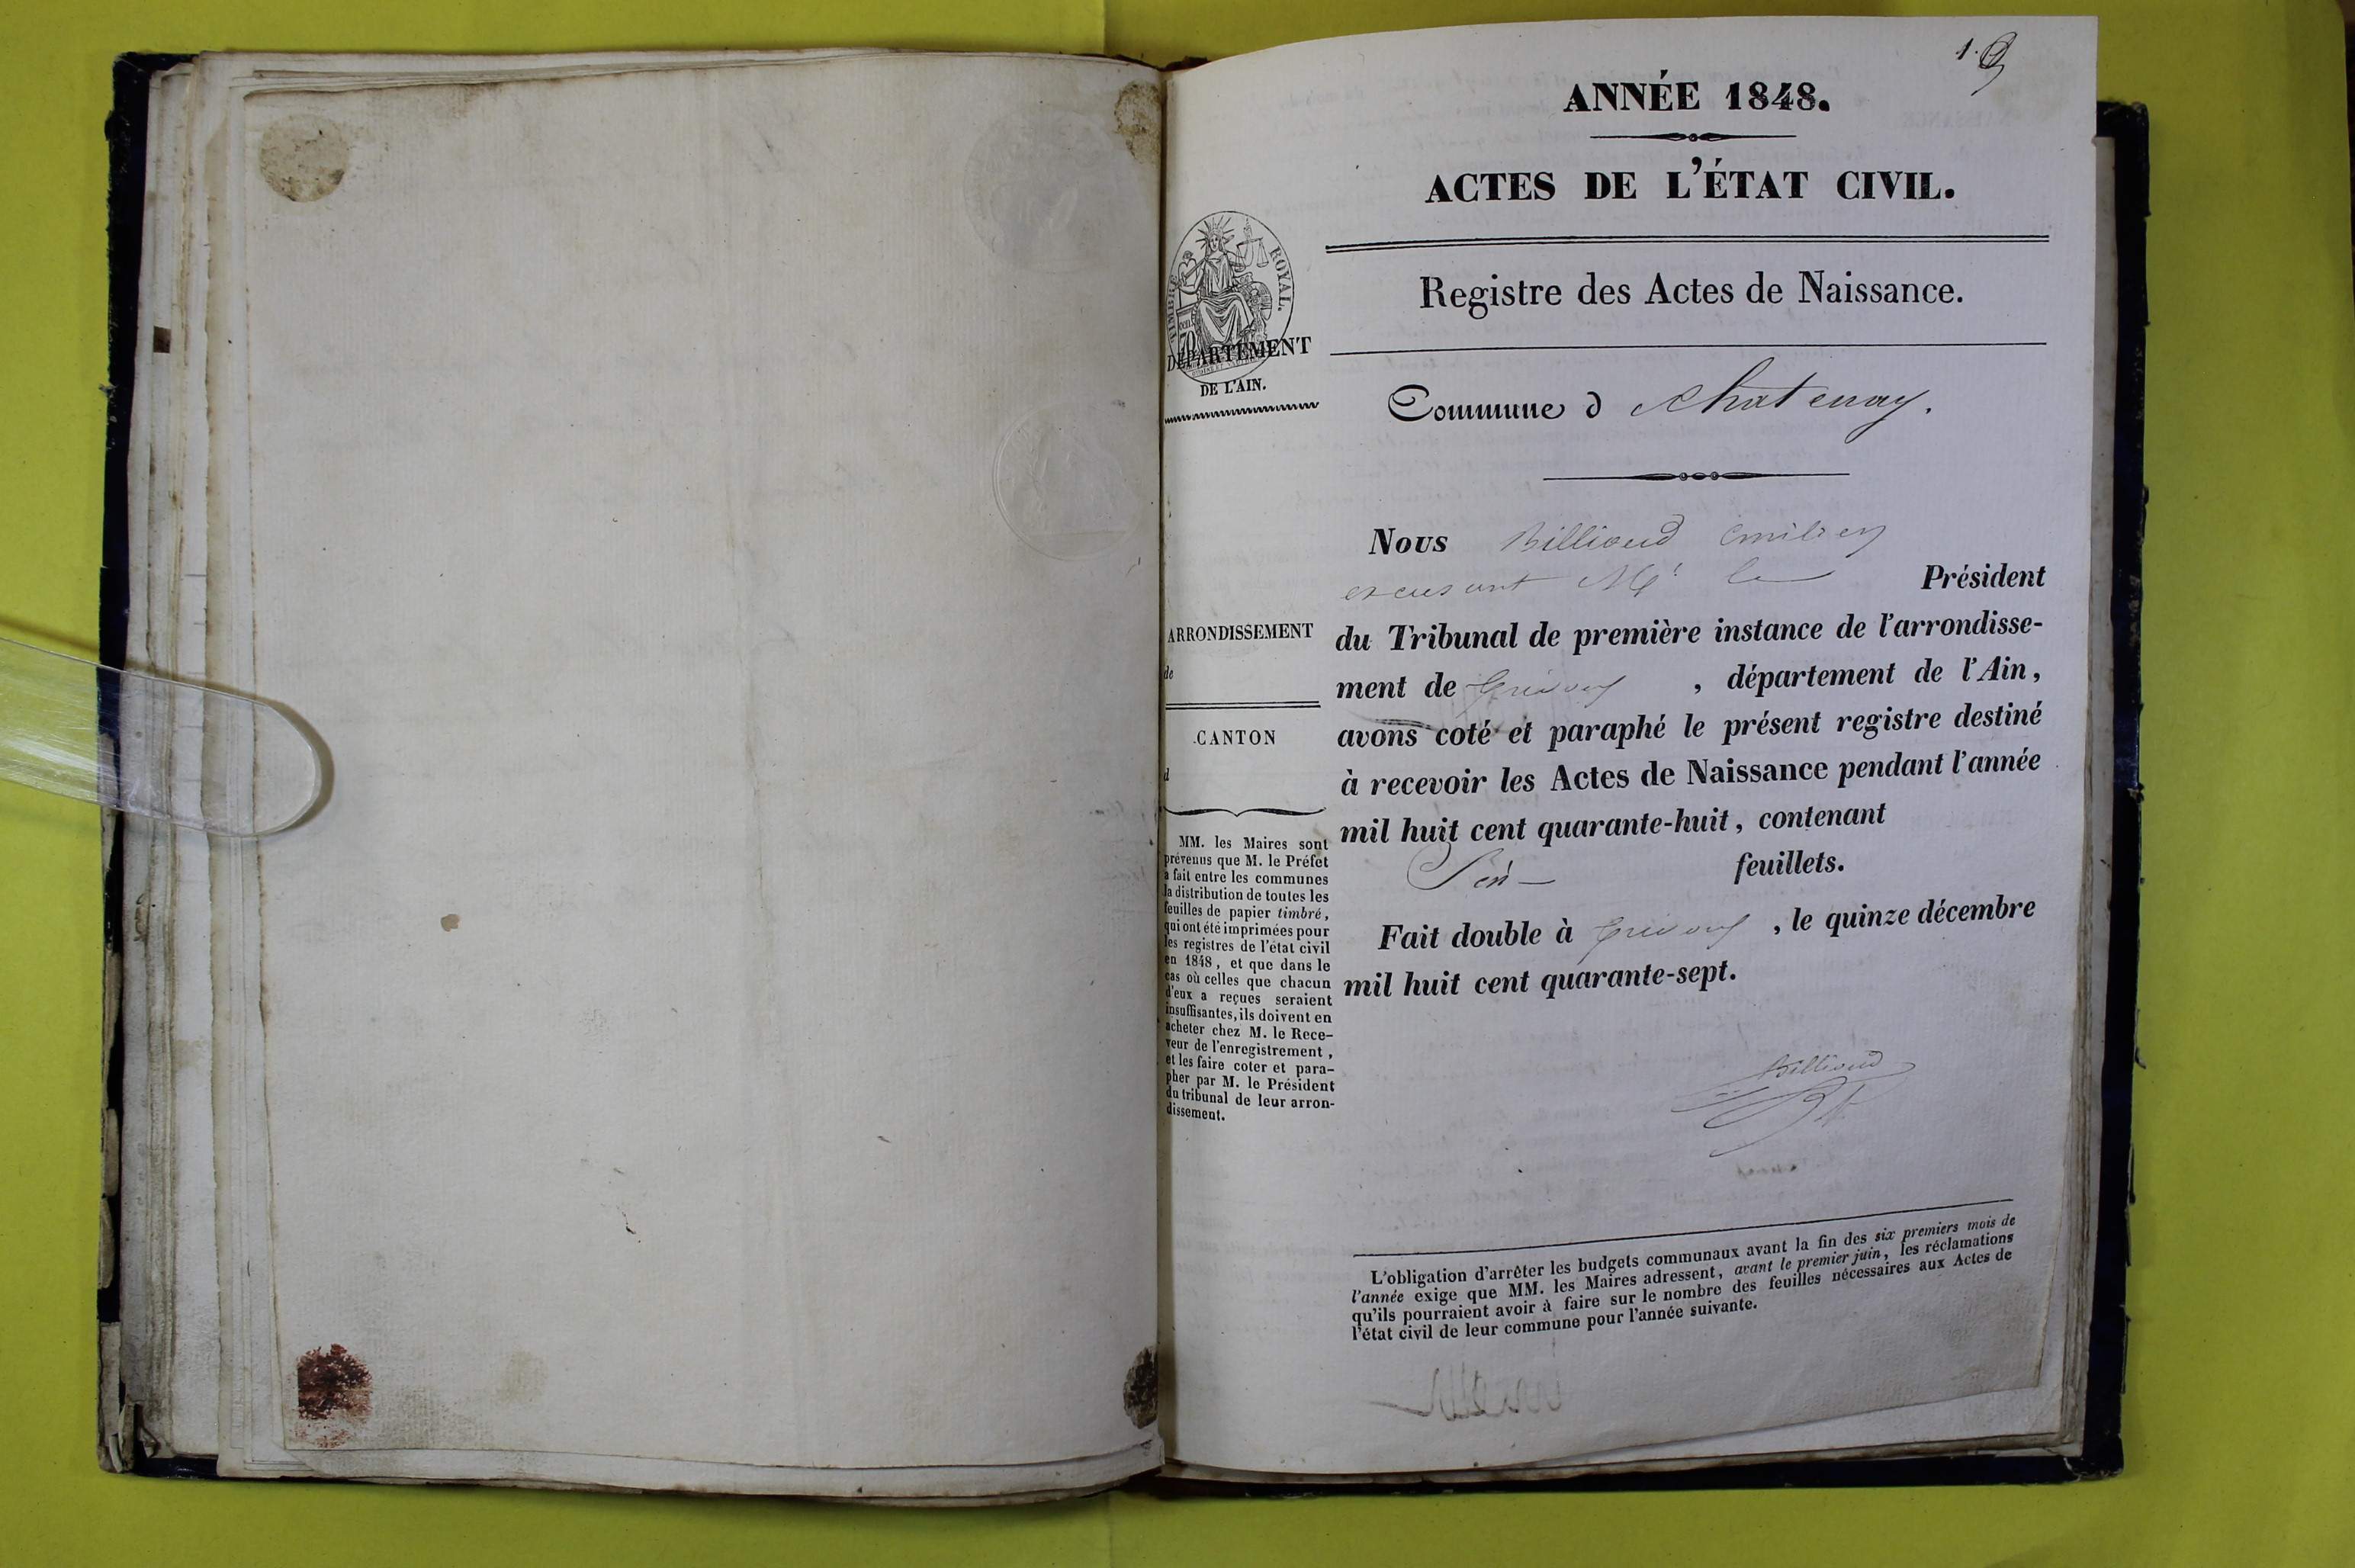 1.
ANNÉE 1848.
ACTES DE L'ÉTAT CIVIL.
Registre des Actes de Naissance.
TIMBRE ROYAL.
70
DÉPARTEMENT
DE L'AIN.
Commune d Chatenay.
ARRONDISSEMENT
de
CANTON
d
MM. les Maires sont
prévenus que M. le Préfet
a fait entre les communes
la distribution de toutes les
feuilles de papier timbré,
qui ont été imprimées pour
les registres de l'état civil
en 1848, et que dans le
cas où celles que chacun
d'eux a reçues seraient
insuffisantes, ils doivent en
acheter chez M. le Rece-
veur de l'enregistrement,
et les faire coter et para-
pher par M. le Président
du tribunal de leur arron-
dissement.
Nous Billioud
Mr. le Président
du Tribunal de première instance de l'arrondisse-
ment de Trévoux, département de l'Ain,
avons coté et paraphé le présent registre destiné
à recevoir les Actes de Naissance pendant l'année
mil huit cent quarante-huit, contenant
feuillets.
Fait double à Trévoux, le quinze décembre
mil huit cent quarante-sept.
Billioud
L'obligation d'arrêter les budgets communaux avant la fin des six premiers mois de
l'année exige que MM. les Maires adressent, avant le premier juin, les réclamations
qu'ils pourraient avoir à faire sur le nombre des feuilles nécessaires aux Actes de
l'état civil de leur commune pour l'année suivante.